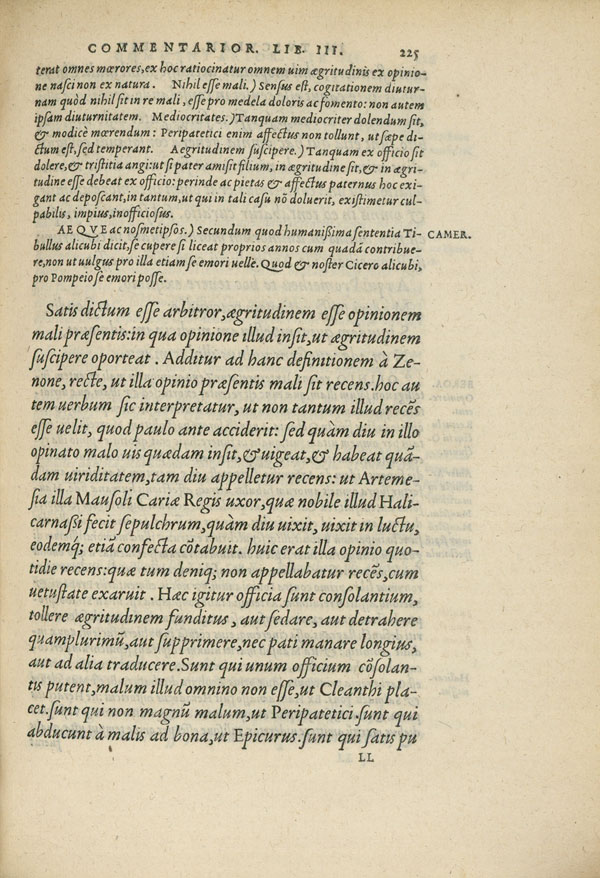 COMMENTARIOR. LIB. III. 225
terat omnes mœrores, ex hoc ratiocinatur omnem uim ægritudinis ex opinio-
ne nasci non ex natura. Nihil esse mali.) Sensus est, cogitationem diutur-
nam quòd nihil sit in re mali, esse pro medela doloris ac fomento: non autem
ipsam diuturnitatem. Mediocritates.) Tanquam mediocriter dolendum sit,
& modicè mœrendum: Peripatetici enim affectus non tollunt, ut sæpe di-
ctum est, sed temperant. Aegritudinem suscipere.) Tanquam ex officio sit
dolere, & tristitia angi: ut si pater amisit filium, in ægritudine sit, & in ægri-
tudine esse debeat ex officio: perinde ac pietas & affectus paternus hoc exi-
gant ac deposcant, in tantum, ut qui in tali casu nō doluerit, existimetur cul-
pabilis, impius, inofficiosus.
AEQVE ac nosmetipsos.) Secundum quod humanißima sententia Ti- CAMER.
bullus alicubi dicit, se cupere si liceat proprios annos cum quadā contribue-
re, non ut uulgus pro illa etiam se emori uelle. Quod & noster Cicero alicubi,
pro Pompeio se emori posse.
Satis dictum esse arbitror, ægritudinem esse opinionem
mali præsentis: in qua opinione illud insit, ut ægritudinem
suscipere oporteat. Additur ad hanc definitionem à Ze-
none, rectè, ut illa opinio præsentis mali sit recens. hoc au
tem uerbum sic interpretatur, ut non tantum illud recēs
esse uelit, quod paulo ante acciderit: sed quàm diu in illo
opinato malo uis quædam insit, & uigeat, & habeat quā-
dam uiriditatem, tam diu appelletur recens: ut Arteme-
sia illa Mausoli Cariæ Regis uxor, quæ nobile illud Hali-
carnaßi fecit sepulchrum, quàm diu uixit, uixit in luctu,
eodemq́; etiā confecta cōtabuit. huic erat illa opinio quo-
tidie recens: quæ tum deniq; non appellabatur recēs, cum
uetustate exaruit. Hæc igitur officia sunt consolantium,
tollere ægritudinem funditus, aut sedare, aut detrahere
quamplurimū, aut supprimere, nec pati manare longius,
aut ad alia traducere. Sunt qui unum officium cōsolan-
tis putent, malum illud omnino non esse, ut Cleanthi pla-
cet. sunt qui non magnū malum, ut Peripatetici. sunt qui
abducunt à malis ad bona, ut Epicurus. sunt qui satis pu
LL